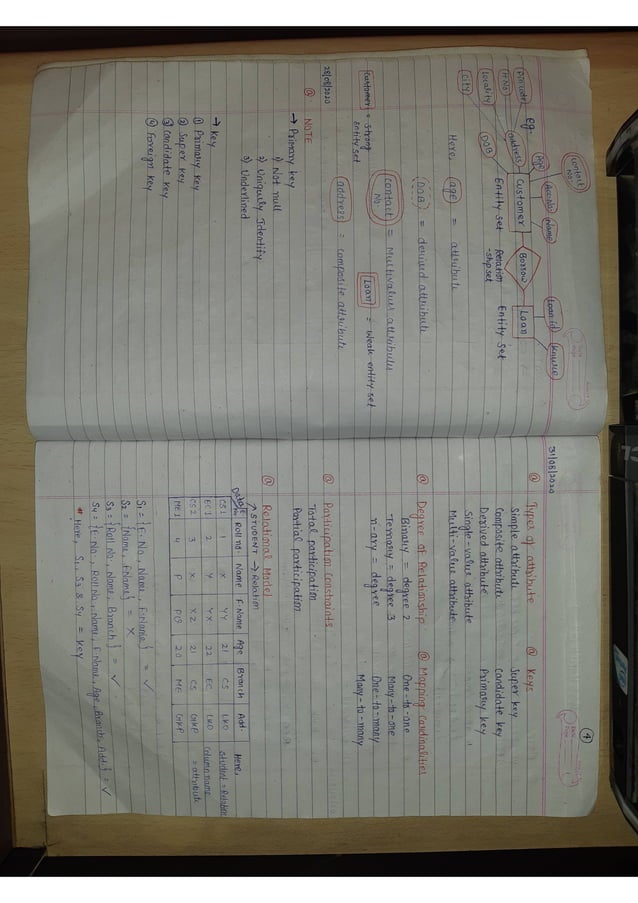 contact No.
Age
Acc.No.
Name
Loan id
eg.
Pincode
H.No.
locality
city
address
DOB
Customer
Borrow
Loan
Entity set
Relation
-ship set
Entity set
Here,
age = attribute
DOB = derived attribute
contact No = Multivalue attribute
Customer = strong
entity set
Loan = weak entity set
address = composite attribute
28/08/2020
@ NOTE
→ Primary key
1) Not null
2) Uniquely Identify
3) Underlined
→ Key
① Primary key
② Super key
③ Candidate key
④ Foreign key
4
31/08/2020
@ Types of attribute
Simple attribute
Composite attribute
Derived attribute
Single-value attribute
Multi-value attribute
@ Keys
Super key
Candidate key
Primary key
@ Degree of Relationship
Binary = degree 2
Ternary = degree 3
n-ary = degree
@ Mapping Cardinalities
One-to-one
Many-to-one
One-to-many
Many-to-many
@ Participation Constraints
Total participation
Partial participation
@ Relational Model
STUDENT → Relation
Roll no. Name F-Name Age Branch Add.
CS1 1 X YY 21 CS LKO
EC1 2 Y YX 22 EC LKO
CS2 3 X XZ 21 CS GKP
ME1 4 P PQ 20 ME GKP
Here,
Student = Relation
Column name
= attribute
S1 = {E-No, Name, F-Name} = ✓
S2 = {Name, F-Name} = X
S3 = {Roll No, Name, Branch} = ✓
S4 = {E-No, Roll No, Name, F-Name, Age, Branch, Add.} = ✓
* Here, S1, S3 & S4 = key